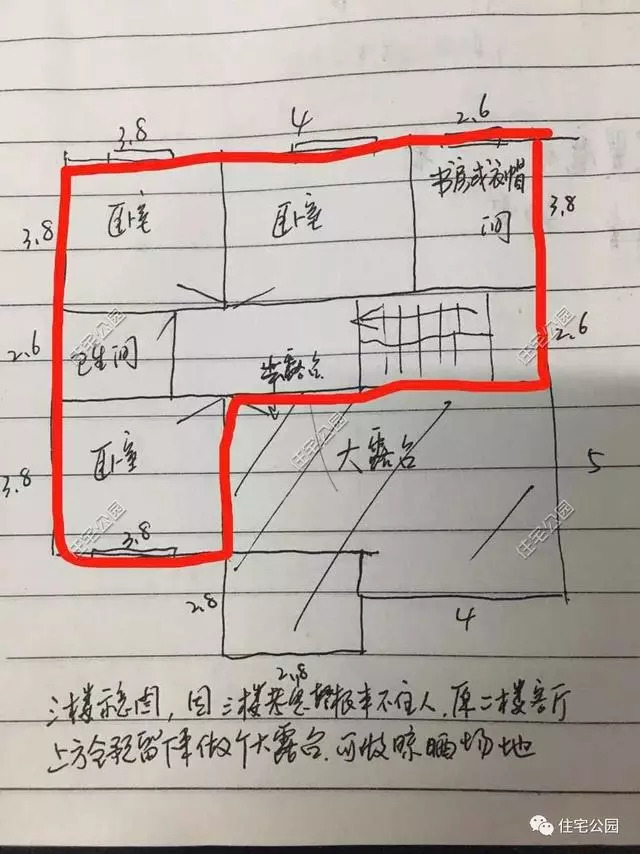 3.8
4
2.6
3.8
卧室
卧室
书房或衣帽间
3.8
2.6
卫生间
2.6
卧室
大露台
3.8
5
3.8
2.8
4
2.8
三楼示意图,因三楼基本不住人,原二楼客厅
上方全预留下来做个大露台,可做晾晒场地
住宅公园
住宅公园
住宅公园
住宅公园
住宅公园
住宅公园